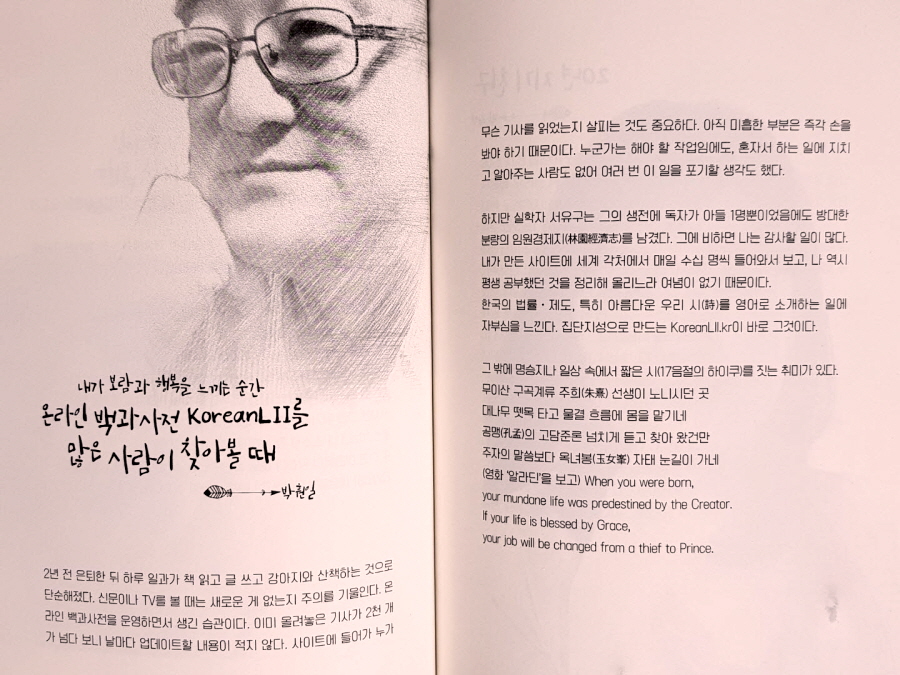 내가 보람과 행복을 느끼는 순간
온라인 백과사전 KoreanLII를
많은 사람이 찾아볼 때
박훤일
2년 전 은퇴한 뒤 하루 일과가 책 읽고 글 쓰고 강아지와 산책하는 것으로
단순해졌다. 신문이나 TV를 볼 때는 새로운 게 없는지 주의를 기울인다. 온
라인 백과사전을 운영하면서 생긴 습관이다. 이미 올려놓은 기사가 2천 개
가 넘다 보니 날마다 업데이트할 내용이 적지 않다. 사이트에 들어가 누가
무슨 기사를 읽었는지 살피는 것도 중요하다. 아직 미흡한 부분은 즉각 손을
봐야 하기 때문이다. 누군가는 해야 할 작업임에도, 혼자서 하는 일에 지치
고 알아주는 사람도 없어 여러 번 이 일을 포기할 생각도 했다.
하지만 실학자 서유구는 그의 생전에 독자가 아들 1명뿐이었음에도 방대한
분량의 임원경제지(林園經濟志)를 남겼다. 그에 비하면 나는 감사할 일이 많다.
내가 만든 사이트에 세계 각처에서 매일 수십 명씩 들어와서 보고, 나 역시
평생 공부했던 것을 정리해 올리느라 여념이 없기 때문이다.
한국의 법률·제도, 특히 아름다운 우리 시(詩)를 영어로 소개하는 일에
자부심을 느낀다. 집단지성으로 만드는 KoreanLII.kr이 바로 그것이다.
그 밖에 명승지나 일상 속에서 짧은 시(17음절의 하이쿠)를 짓는 취미가 있다.
무이산 구곡계류 주희(朱熹) 선생이 노니시던 곳
대나무 뗏목 타고 물결 흐름에 몸을 맡기네
공맹(孔孟)의 고담준론 넘치게 듣고 찾아 왔건만
주자의 말씀보다 옥녀봉(玉女峯) 자태 눈길이 가네
(영화 '알라딘'을 보고) When you were born,
your mundane life was predestined by the Creator.
If your life is blessed by Grace,
your job will be changed from a thief to Prince.